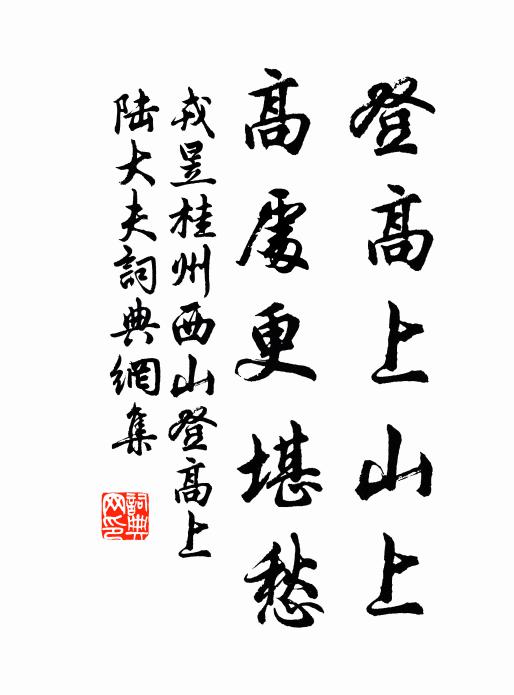 登高上山上
高處更堪愁
戎昱桂州西山登高上
陆大夫詞典網集
詞典
网印